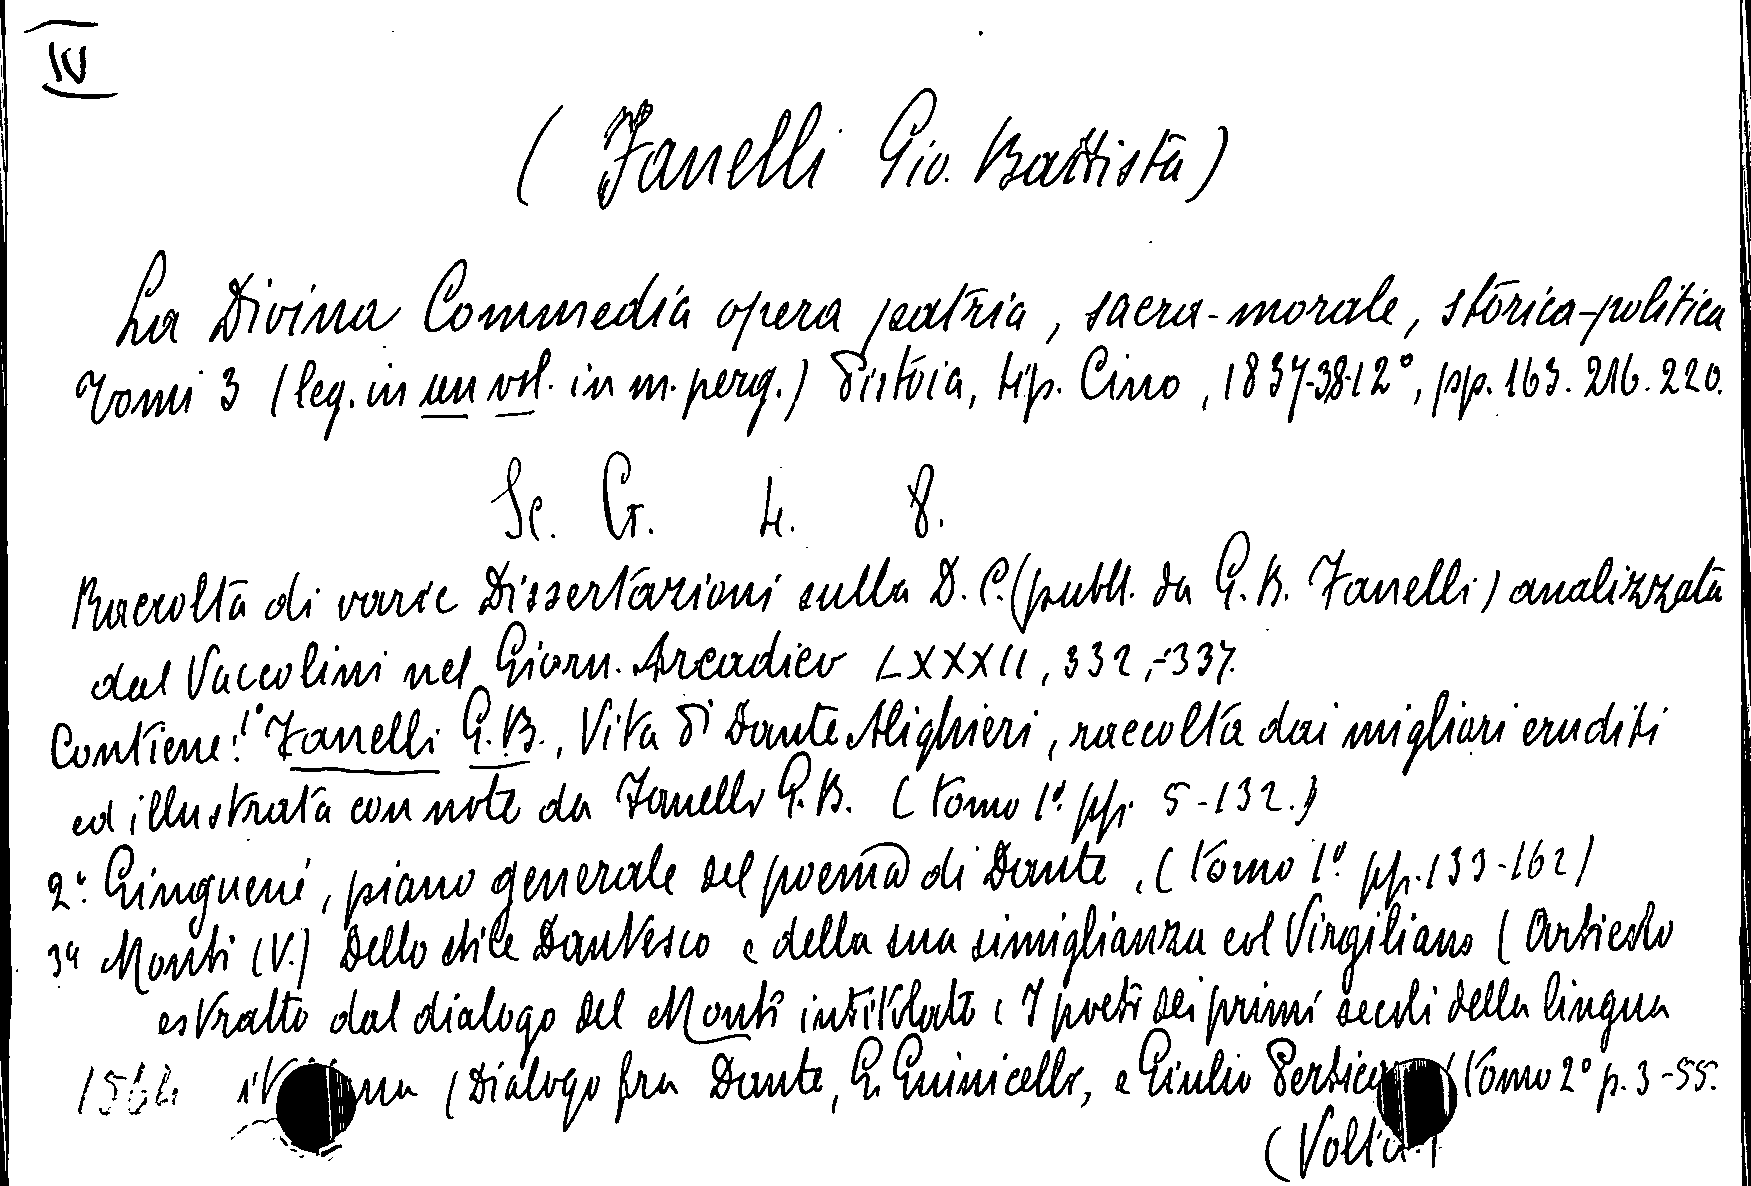 IV
( Fanelli Gio. Battista )
La Divina Commedia opera patria, sacra-morale, storica-politica
Tomi 3 (leg. in un vol. in m. perg.) Pistoia, tip. Cino, 1837-38-12°, pp. 163. 216. 220.
Sc. G. 4. 8.
Raccolta di varie Dissertazioni sulla D. C. (pubbl. da G. B. Fanelli) analizzata
dal Vaccolini nel Giorn. Arcadico LXXXII, 332,-337.
Contiene: 1° Fanelli G. B., Vita di Dante Alighieri, raccolta dai migliori eruditi
ed illustrata con note da Fanelli G. B. (Tomo 1° pp. 5-132.)
2° Ginguené, piano generale del poema di Dante, (Tomo 1° pp. 133-162)
3° Monti (V.) Dello stile Dantesco e della sua simiglianza col Virgiliano (Articolo
estratto dal dialogo del Monti intitolato: I poeti dei primi secoli della lingua
1564 (Dialogo fra Dante, G. Guinicelli, e Giulio (Tomo 2° p. 3-55.
(Volta)